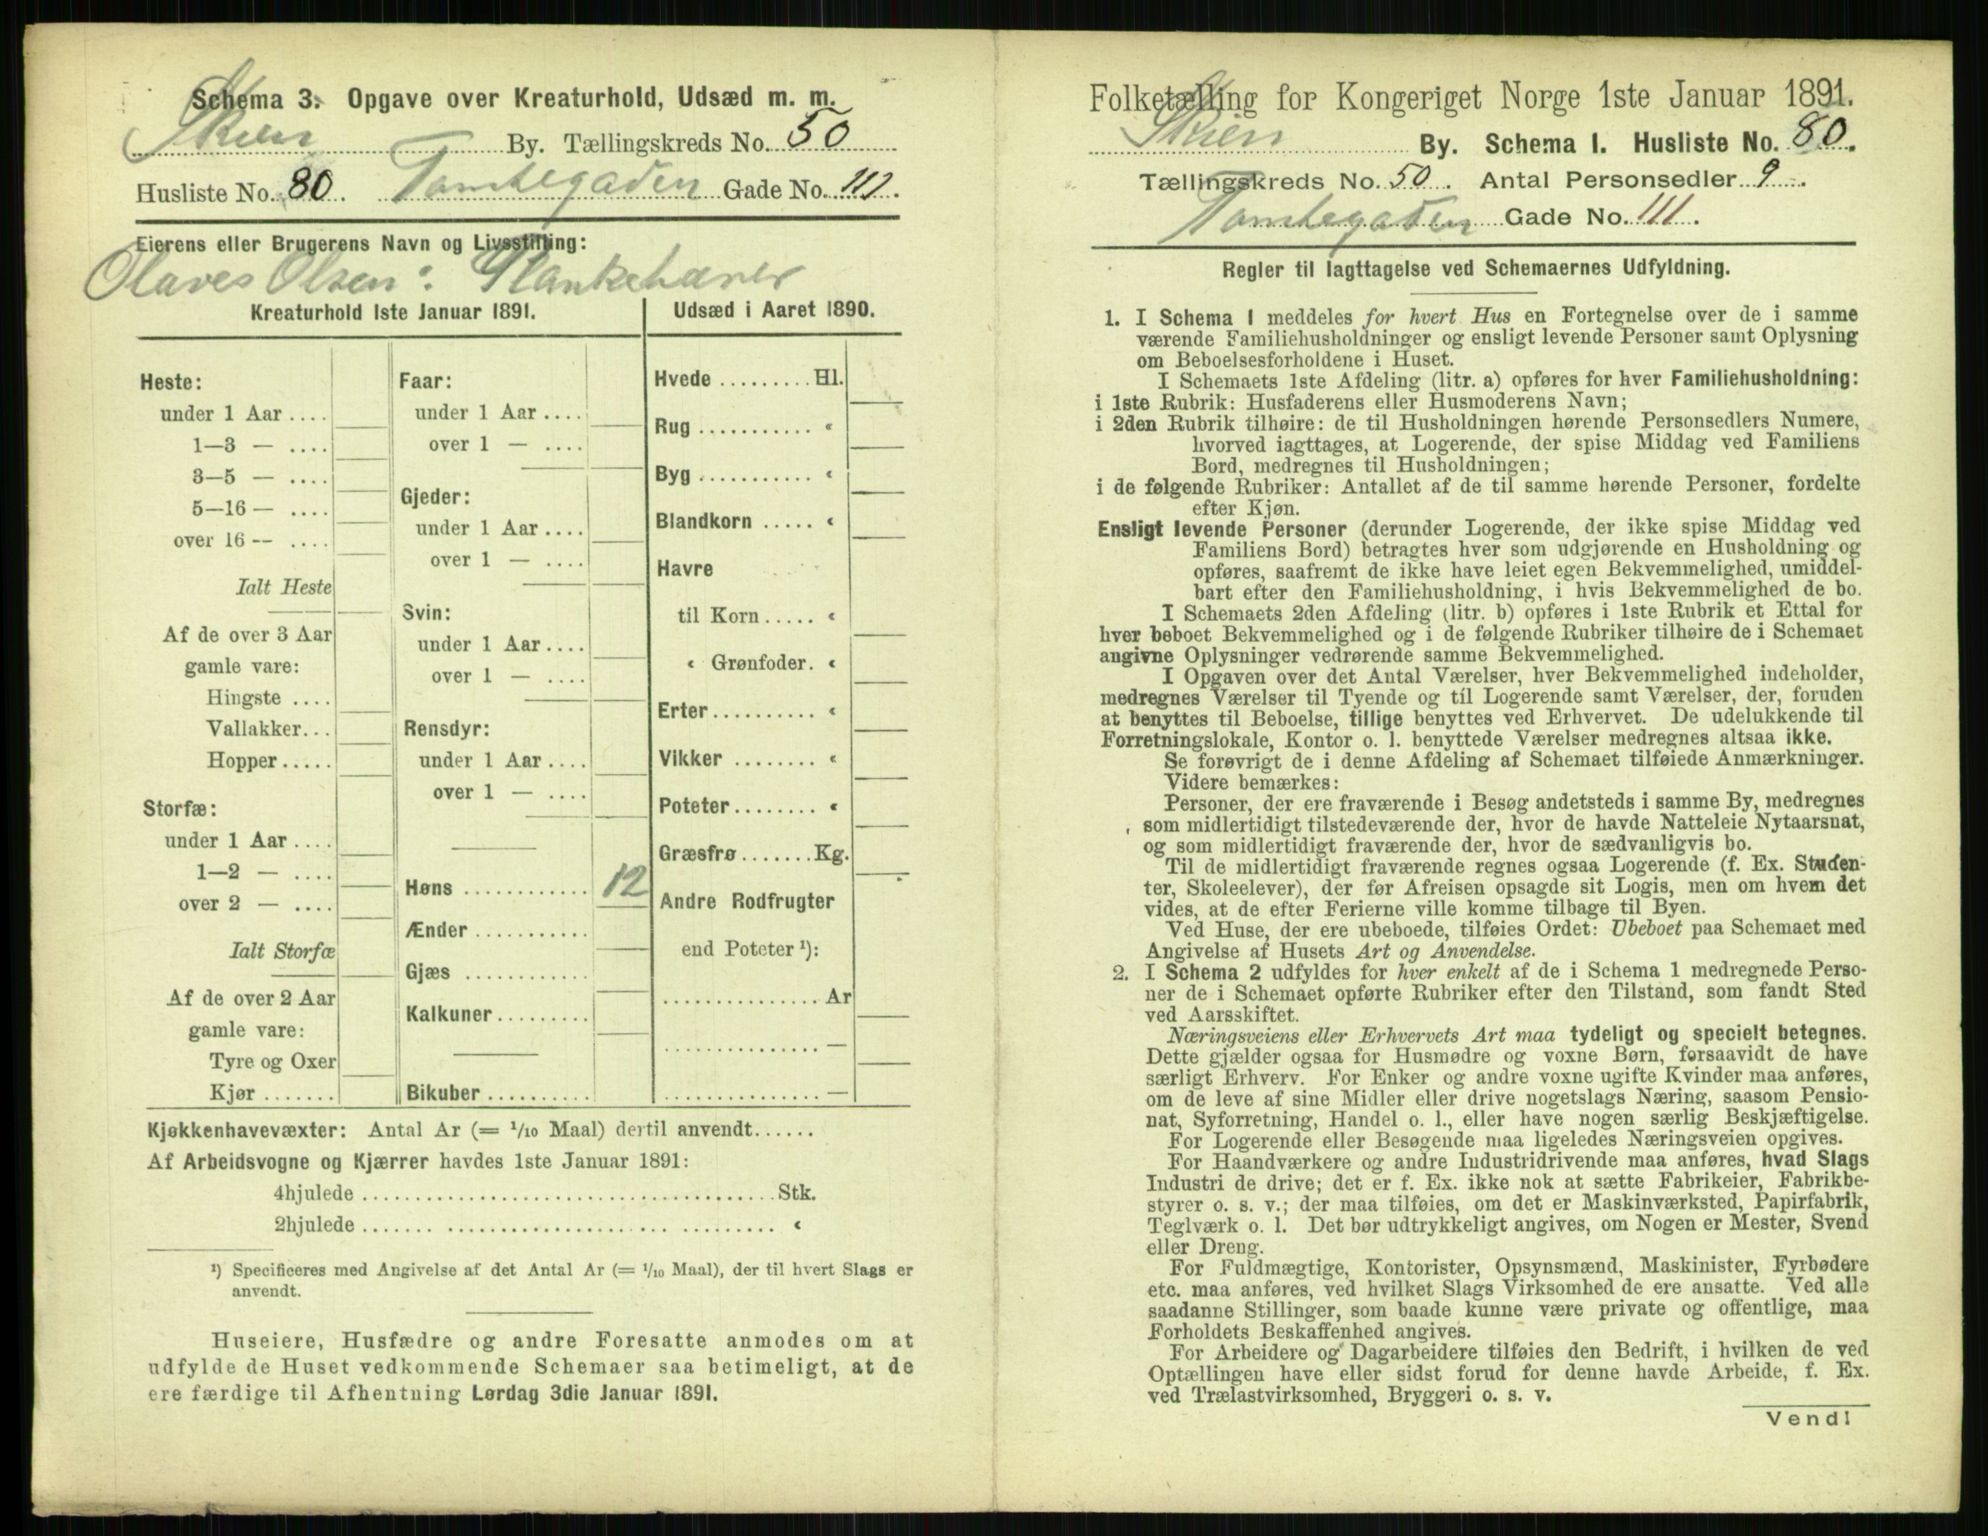 Schema 3. Opgave over Kreaturhold, Udsæd m. m.
Skien By. Tællingskreds No. 50
Husliste No. 80. Tomtegaden Gade No. 111.
Eierens eller Brugerens Navn og Livsstilling:
Olaves Olsen: Plankebærer
Kreaturhold 1ste Januar 1891.
Heste:
under 1 Aar ....
1—3 — ....
3—5 — ....
5—16 — ....
over 16 — ....
Ialt Heste
Af de over 3 Aar
gamle vare:
Hingste ....
Vallakker...
Hopper.....
Storfæ:
under 1 Aar ....
1—2 — ....
over 2 — ....
Ialt Storfæ
Af de over 2 Aar
gamle vare:
Tyre og Oxer
Kjør .......
Faar:
under 1 Aar ....
over 1 — ....
Gjeder:
under 1 Aar ....
over 1 — ....
Svin:
under 1 Aar ....
over 1 — ....
Rensdyr:
under 1 Aar ....
over 1 — ....
Høns ............ 12
Ænder ...........
Gjæs ............
Kalkuner.........
Bikuber ..........
Udsæd i Aaret 1890.
Hvede .........Hl.
Rug ........... «
Byg ........... «
Blandkorn ..... «
Havre
til Korn ..... «
« Grønfoder. «
Erter.......... «
Vikker ........ «
Poteter........ «
Græsfrø .......Kg.
Andre Rodfrugter
end Poteter ¹):
............... Ar
............... —
............... —
Kjøkkenhavevæxter: Antal Ar (= 1/10 Maal) dertil anvendt......
Af Arbeidsvogne og Kjærrer havdes 1ste Januar 1891:
4hjulede ......................................Stk.
2hjulede ...................................... «
¹) Specificeres med Angivelse af det Antal Ar (= 1/10 Maal), der til hvert Slags er
anvendt.
Huseiere, Husfædre og andre Foresatte anmodes om at
udfylde de Huset vedkommende Schemaer saa betimeligt, at de
ere færdige til Afhentning Lørdag 3die Januar 1891.
Folketælling for Kongeriget Norge 1ste Januar 1891.
Skien By. Schema I. Husliste No. 80.
Tællingskreds No. 50. Antal Personsedler 9.
Tomtegaden Gade No. 111.
Regler til Iagttagelse ved Schemaernes Udfyldning.
1. I Schema I meddeles for hvert Hus en Fortegnelse over de i samme
værende Familiehusholdninger og ensligt levende Personer samt Oplysning
om Beboelsesforholdene i Huset.
I Schemaets 1ste Afdeling (litr. a) opføres for hver Familiehusholdning:
i 1ste Rubrik: Husfaderens eller Husmoderens Navn;
i 2den Rubrik tilhøire: de til Husholdningen hørende Personsedlers Numere,
hvorved iagttages, at Logerende, der spise Middag ved Familiens
Bord, medregnes til Husholdningen;
i de følgende Rubriker: Antallet af de til samme hørende Personer, fordelte
efter Kjøn.
Ensligt levende Personer (derunder Logerende, der ikke spise Middag ved
Familiens Bord) betragtes hver som udgjørende en Husholdning og
opføres, saafremt de ikke have leiet egen Bekvemmelighed, umiddel-
bart efter den Familiehusholdning, i hvis Bekvemmelighed de bo.
I Schemaets 2den Afdeling (litr. b) opføres i 1ste Rubrik et Ettal for
hver beboet Bekvemmelighed og i de følgende Rubriker tilhøire de i Schemaet
angivne Oplysninger vedrørende samme Bekvemmelighed.
I Opgaven over det Antal Værelser, hver Bekvemmelighed indeholder,
medregnes Værelser til Tyende og til Logerende samt Værelser, der, foruden
at benyttes til Beboelse, tillige benyttes ved Erhvervet. De udelukkende til
Forretningslokale, Kontor o. l. benyttede Værelser medregnes altsaa ikke.
Se forøvrigt de i denne Afdeling af Schemaet tilføiede Anmærkninger.
Videre bemærkes:
Personer, der ere fraværende i Besøg andetsteds i samme By, medregnes
som midlertidigt tilstedeværende der, hvor de havde Natteleie Nytaarsnat,
og som midlertidigt fraværende der, hvor de sædvanligvis bo.
Til de midlertidigt fraværende regnes ogsaa Logerende (f. Ex. Studen-
ter, Skoleelever), der før Afreisen opsagde sit Logis, men om hvem det
vides, at de efter Ferierne ville komme tilbage til Byen.
Ved Huse, der ere ubeboede, tilføies Ordet: Ubeboet paa Schemaet med
Angivelse af Husets Art og Anvendelse.
2. I Schema 2 udfyldes for hver enkelt af de i Schema 1 medregnede Perso-
ner de i Schemaet opførte Rubriker efter den Tilstand, som fandt Sted
ved Aarsskiftet.
Næringsveiens eller Erhvervets Art maa tydeligt og specielt betegnes.
Dette gjælder ogsaa for Husmødre og voxne Børn, forsaavidt de have
særligt Erhverv. For Enker og andre voxne ugifte Kvinder maa anføres,
om de leve af sine Midler eller drive nogetslags Næring, saasom Pensio-
nat, Syforretning, Handel o. l., eller have nogen særlig Beskjæftigelse.
For Logerende eller Besøgende maa ligeledes Næringsveien opgives.
For Haandværkere og andre Industridrivende maa anføres, hvad Slags
Industri de drive; det er f. Ex. ikke nok at sætte Fabrikeier, Fabrikbe-
styrer o. s. v.; der maa tilføies, om det er Maskinværksted, Papirfabrik,
Teglværk o. l. Det bør udtrykkeligt angives, om Nogen er Mester, Svend
eller Dreng.
For Fuldmægtige, Kontorister, Opsynsmænd, Maskinister, Fyrbødere
etc. maa anføres, ved hvilket Slags Virksomhed de ere ansatte. Ved alle
saadanne Stillinger, som baade kunne være private og offentlige, maa
Forholdets Beskaffenhed angives.
For Arbeidere og Dagarbeidere tilføies den Bedrift, i hvilken de ved
Optællingen have eller sidst forud for denne havde Arbeide, f. Ex.
ved Trælastvirksomhed, Bryggeri o. s. v.
Vend!